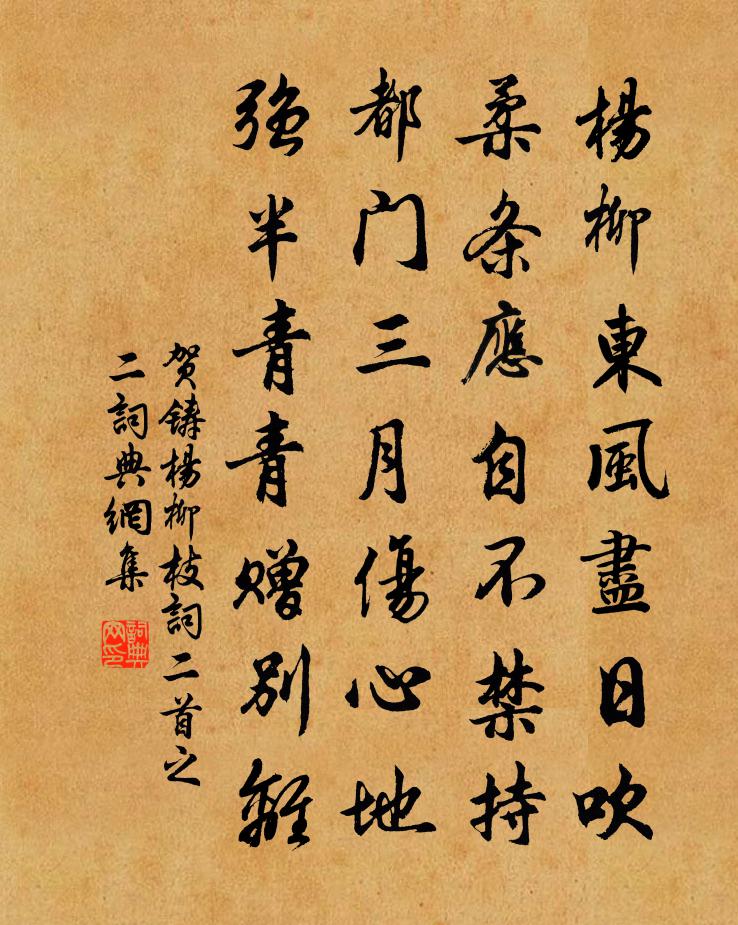 楊柳東風盡日吹
柔条應自不禁持
都门三月傷心地
强半青青赠别離
贺鑄楊柳枝詞二首之
二詞典網集
詞典网印